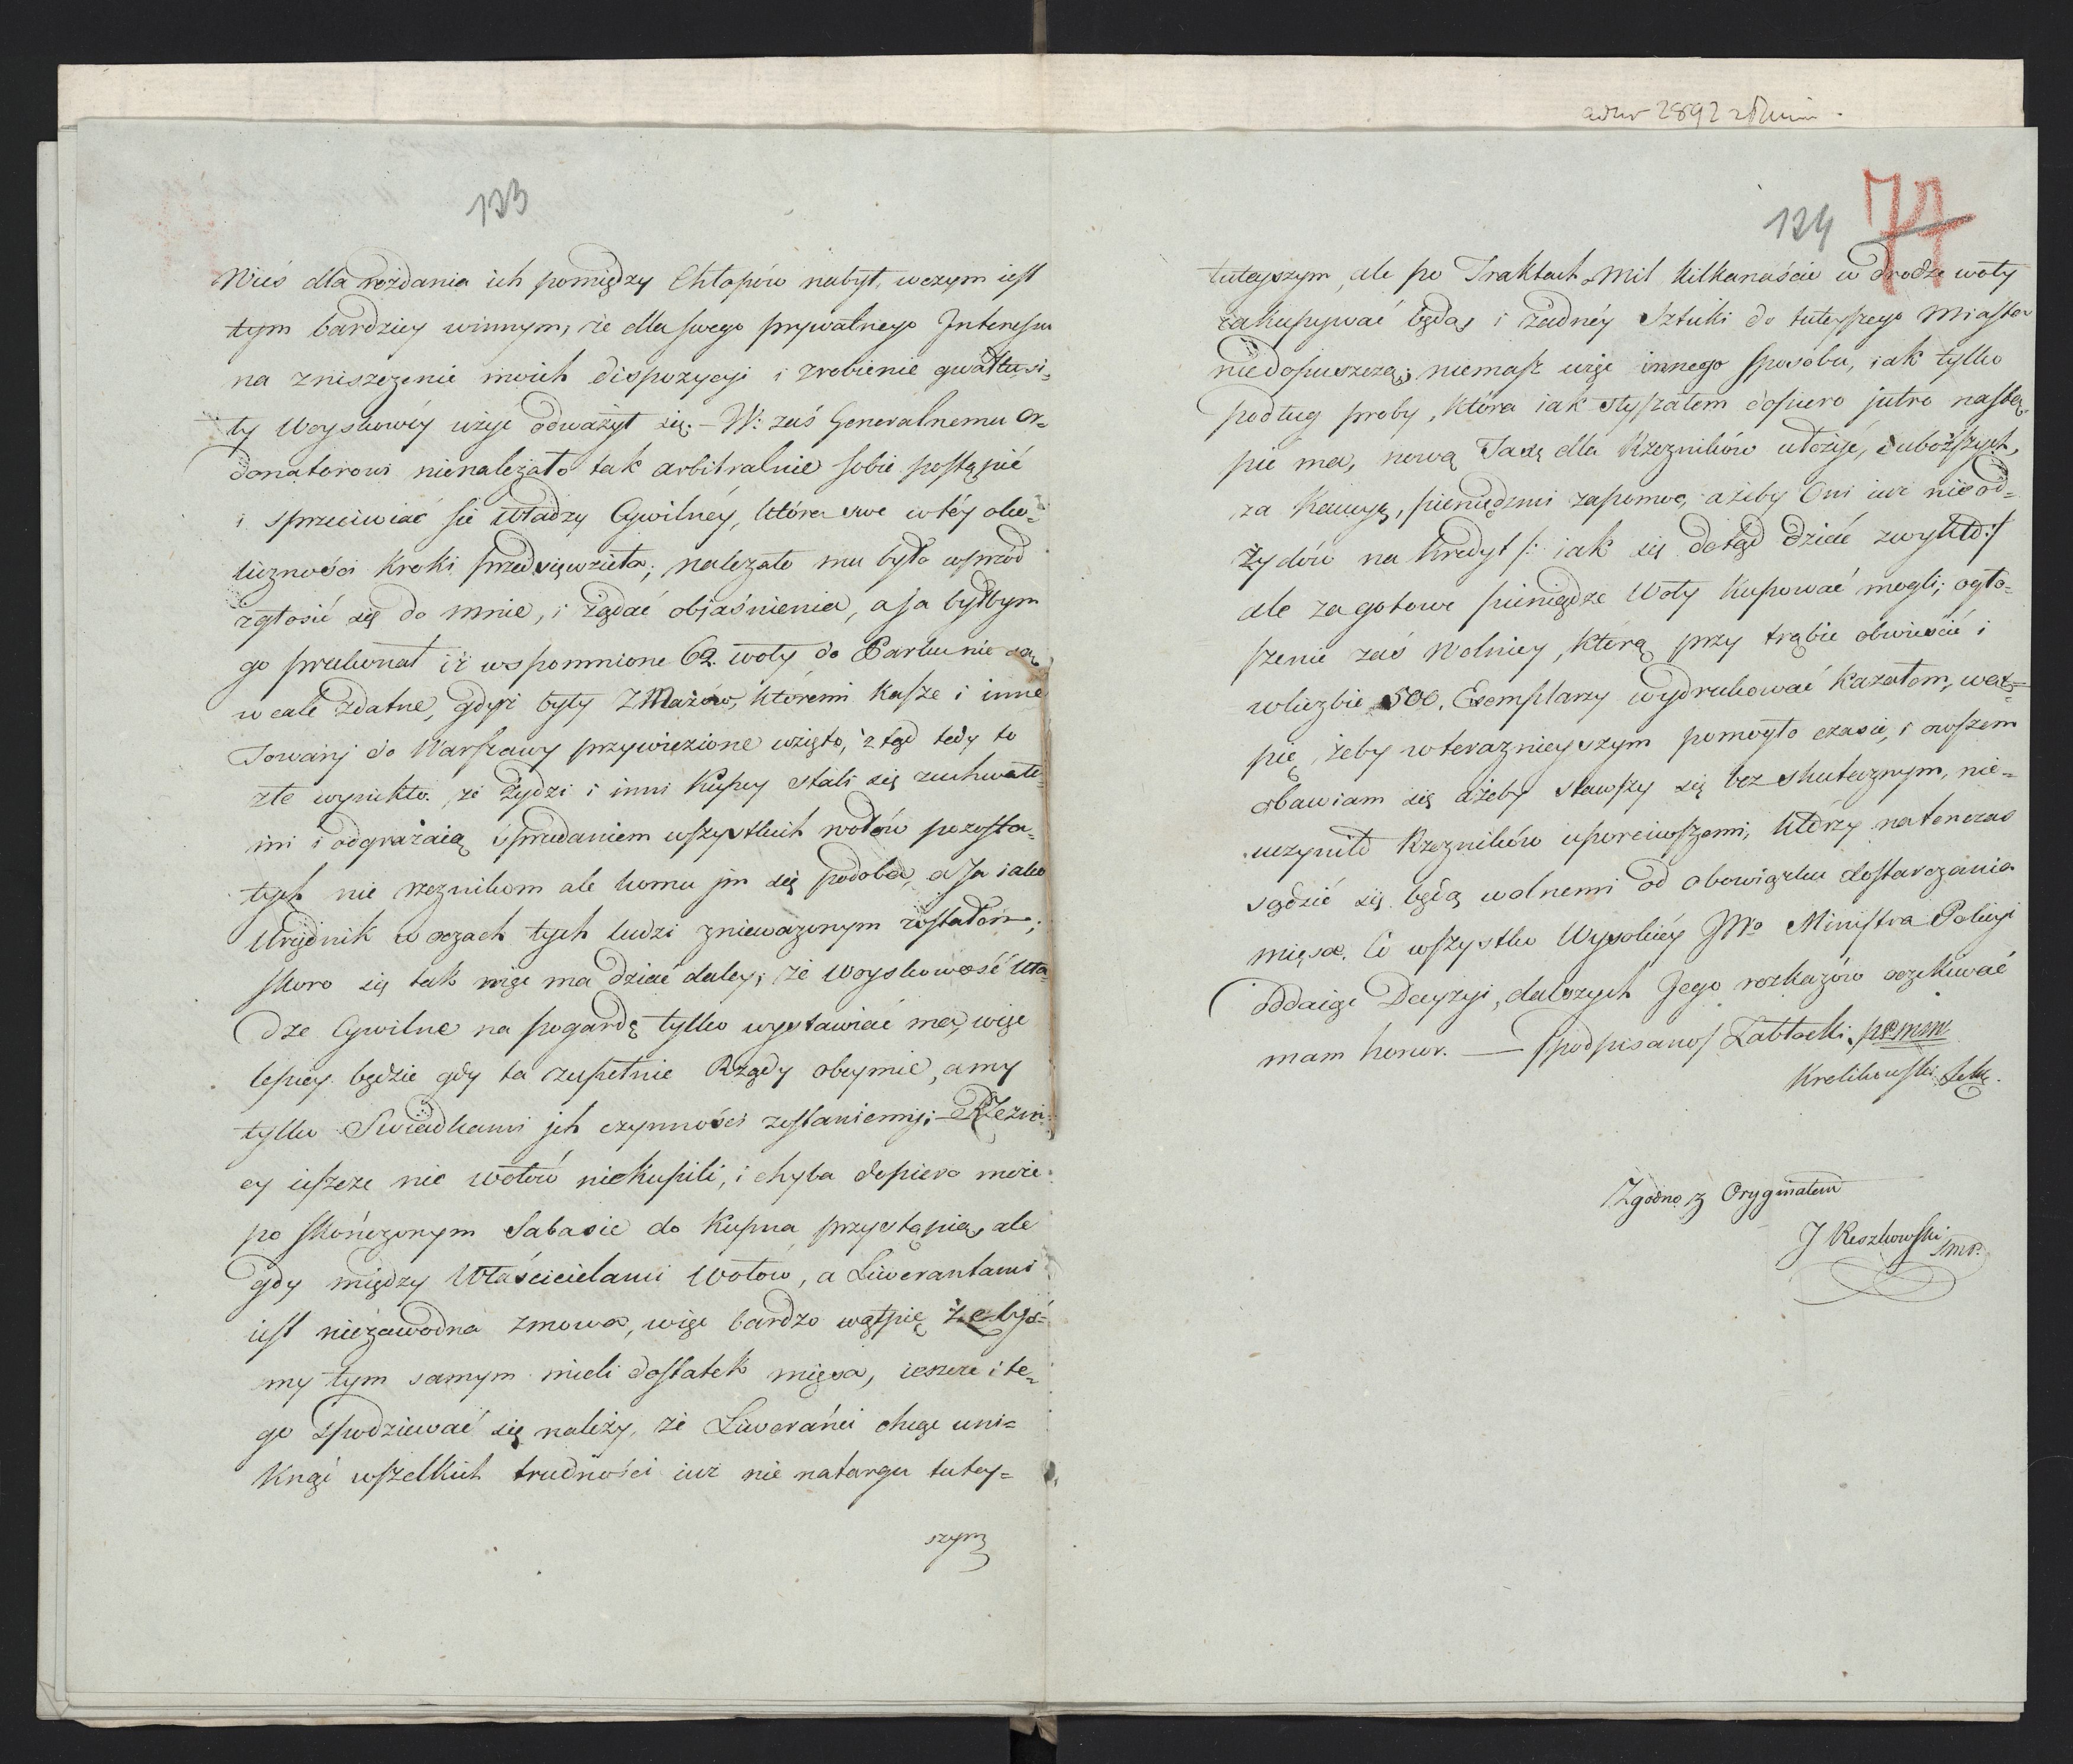 133
Wieś dla rozdania ich pomiędzy Chłopów nabył, w czym iest
tym bardziey winnym, że dla swego prywatnego Interesu
na zniszczenie moich dispozycyi i zrobienie gwałtu si-
ły Woyskowéy użyć odważył się. – W: zaś Generalnemu Or-
donatorowi nienależało tak arbitralnie sobie postąpić
i sprzeciwiać się Władzy Cywilnéy, która swe w téy oko-
liczności kroki przedsięwzieła; należało mu było wprzód
zgłosić się do mnie, i żądać objaśnienia, a Ja byłbym
go przekonał iż wspomnione 62. woły do Parku nie są
w cale zdatne, gdyż były z Mażów, któremi Kasze i inne
Towary do Warszawy przywiezione wzięto, z tąd tedy to
złe wynikło. że Żydzi i inni Kupcy stali się zuchwałe-
mi i odgrażaią sprzedaniem wszystkich wołów pozosta-
łych nie rzeznikom ale komu jm się podoba, a Ja iako
Urzędnik w oczach tych ludzi znieważonym zostałem;
skoro się tak więc ma dziać daley, że Woyskowość Wła-
dze Cywilne na pogardę tylko wystawiać ma, więc
lepiey będzie gdy ta zupełnie Rządy obeymie, a my
tylko Swiadkami jch czynności zostaniemy; – Rzezni-
cy ieszcze nic wołów nie kupili, i chyba dopiero może
po skończonym Sabasie do Kupna przystąpią, ale
gdy między Właścicielami Wołow, a Liwerantami
iest niezawodna zmowa, więc bardzo wątpię żebyś-
my tym samym mieli dostatek mięsa, ieszcze i te-
go spodziewać się należy, że Liweranci chcąc uni-
knąć wszelkich trudności iuż nie na targu tutey-
szym
134 77
tuteyszym, ale po Traktach Mil kilkanaście w drodze woły
zakupywać będą i żadnéy Sztuki do tuteyszego Miasta
niedopuszczą; niemasz więc innego sposobu, iak tylko
podług proby, która iak słyszałem dopiero jutro nastą-
pić ma, nową Taxę dla Rzezników ułożyć, i uboższych,
za Kaucyą, pieniędzmi zapomoc, ażeby Oni iuż nie od
Żydów na Kredyt /: iak się dotąd dziać zwykło:/
ale za gotowe pieniądze Woły kupować mogli; ogło-
szenie zaś Wolnicy, którą przy trąbie obwieścić i
w liczbie 500. Exemplarzy wydrukować kazałem, wąt-
pię, żeby w teraznieyszym pomogło czasie, i owszem
obawiam się ażeby stawszy się bez skutecznym, nie-
uczyniło Rzezników uporciwszemi, którzy natenczas
sądzić się będą wolnemi od obowiązku dostarczania
mięsa. Co wszystko Wysokiéy JWo Ministra Policyi
oddaiąc Decyzyi, dalszych Jego rozkazów oczekiwać
mam honor. — /podpisano/ Zabłocki,
Krolikowski Sekr.
Zgodno z Oryginałem
J Reszkowski